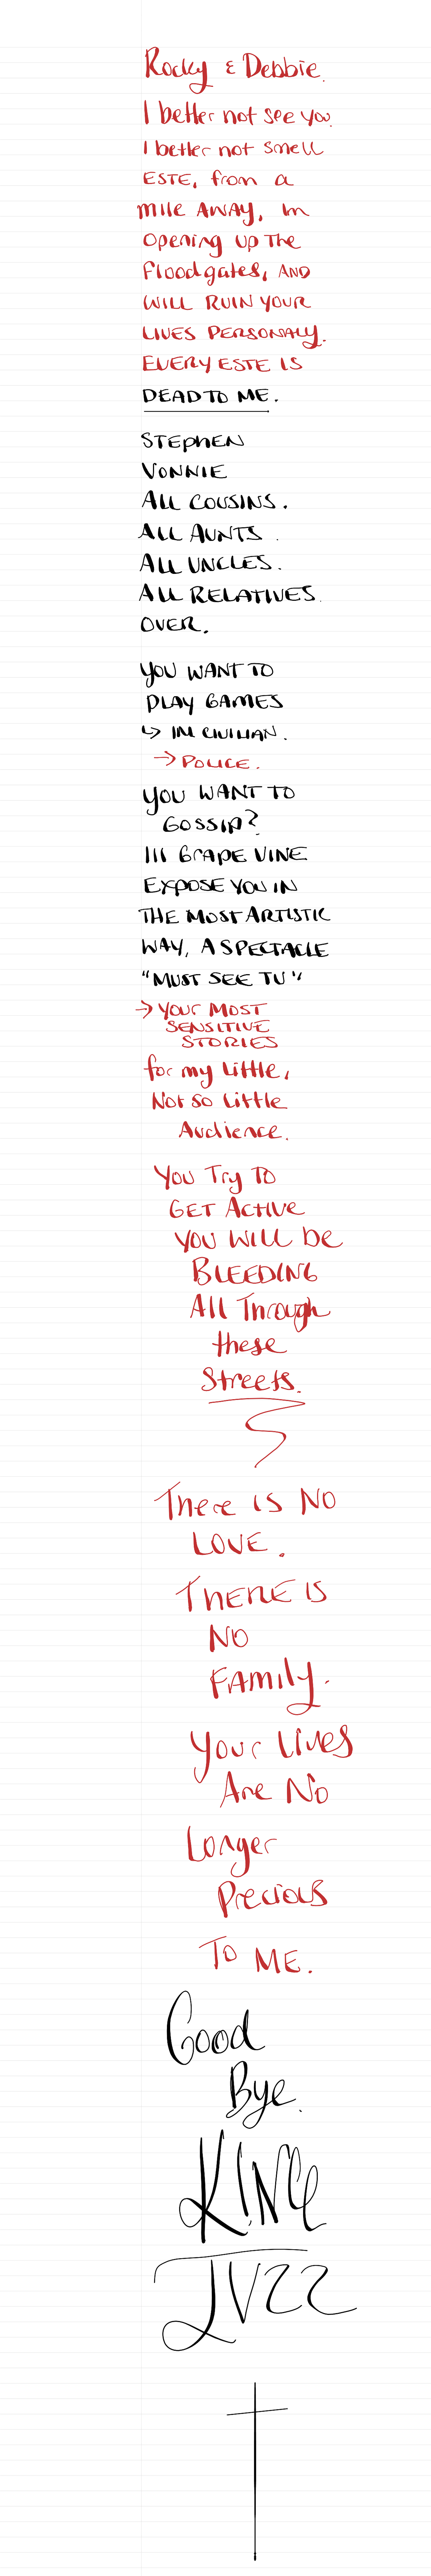 Rocky & Debbie.
I better not see you.
I better not smell
ESTE, from a
mile AWAY, Im
opening up the
floodgates, AND
WILL RUIN YOUR
LIVES PERSONALY.
EVERY ESTE IS
DEAD TO ME.
STEPHEN
VONNIE
ALL COUSINS.
ALL AUNTS.
ALL UNCLES.
ALL RELATIVES.
OVER.
YOU WANT TO
PLAY GAMES
↳ IM CIVILIAN.
→ POLICE.
YOU WANT TO
GOSSIP?
Ill GRAPE VINE
EXPOSE YOU IN
THE MOST ARTISTIC
WAY, A SPECTACLE
"MUST SEE TV"
→ YOUR MOST
SENSITIVE
STORIES
for my little,
Not so little
Audience.
You Try To
GET ACTIVE
YOU WILL be
BLEEDING
All Through
these
Streets.
There is NO
LOVE.
THERE IS
NO
FAMILY.
Your Lives
Are No
Longer
Precious
To ME.
Good
Bye.
KING